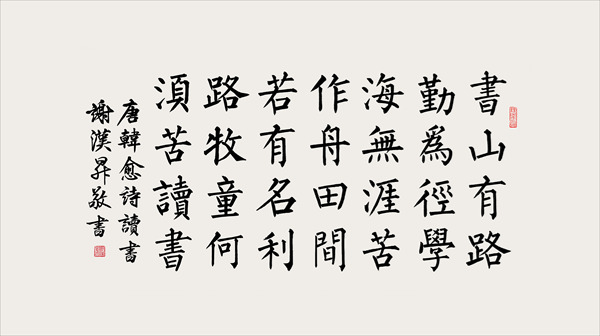 書山有路
勤爲徑學
海無涯苦
作舟田間
若有名利
路牧童何
湏苦讀書
唐韓愈詩讀書
謝漢昇敬書